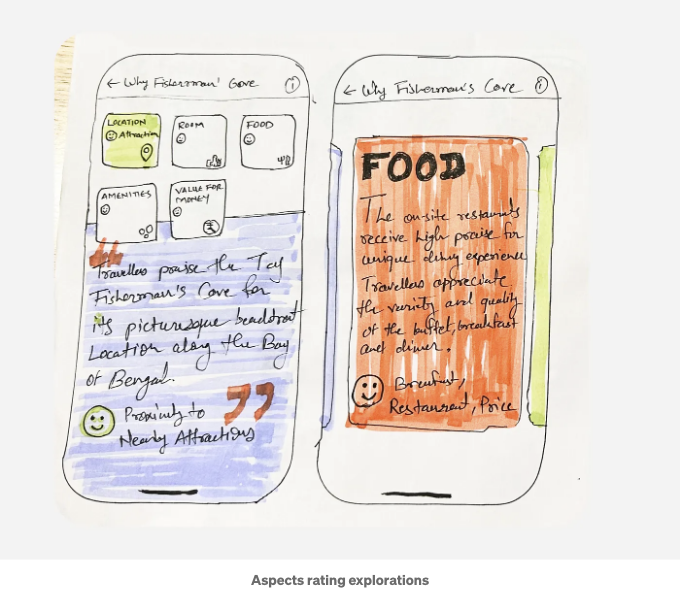 ← Why Fisherman' Cove i
LOCATION
Attraction
ROOM
FOOD
AMENITIES
VALUE FOR
MONEY
"
Travellers praise the Taj
Fisherman's Cove for
its picturesque beachfront
Location along the Bay
of Bengal.
"
Proximity to
Nearby Attractions
← Why Fisherman's Cove i
FOOD
The on-site restaurants
receive high praise for
unique dining experience
Travellers appreciate
the variety and quality
of the buffet, breakfast
and dinner.
Breakfast,
Restaurant, Price
Aspects rating explorations